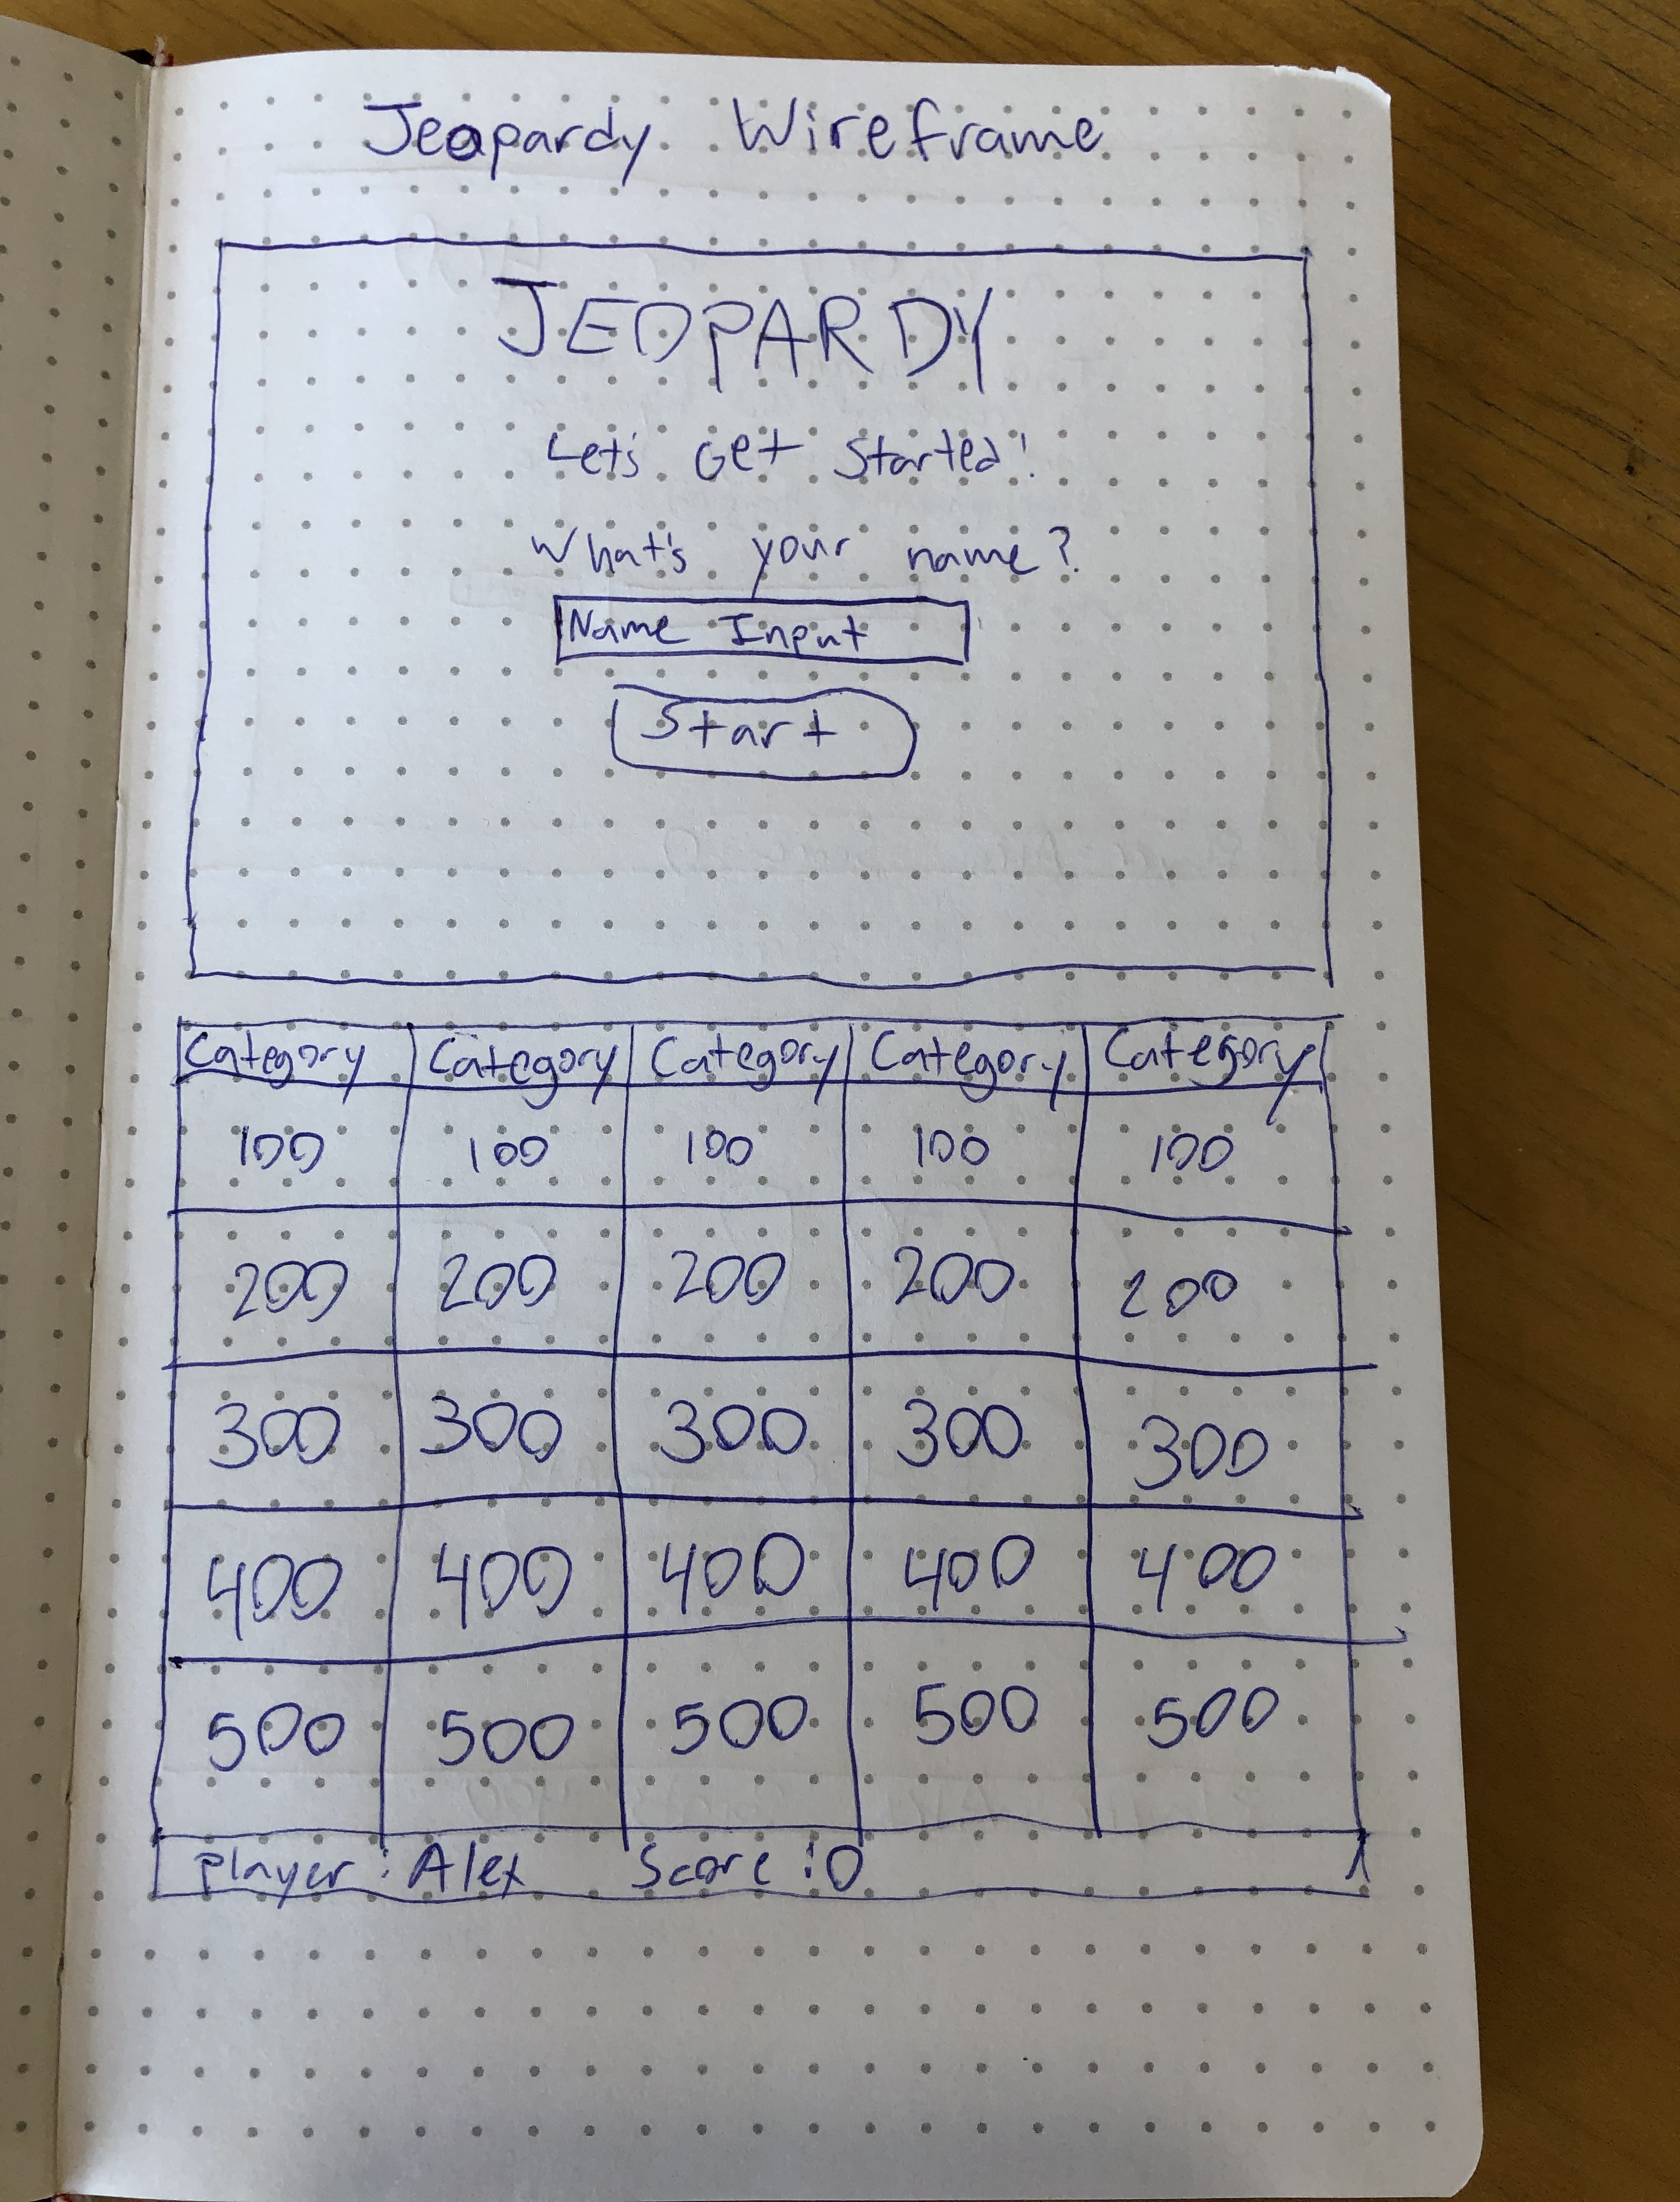 Jeopardy Wireframe
JEOPARDY
Let's Get Started!
What's your name?
Name Input
Start
Category Category Category Category Category
100 100 100 100 100
200 200 200 200 200
300 300 300 300 300
400 400 400 400 400
500 500 500 500 500
Player: Alex Score: 0